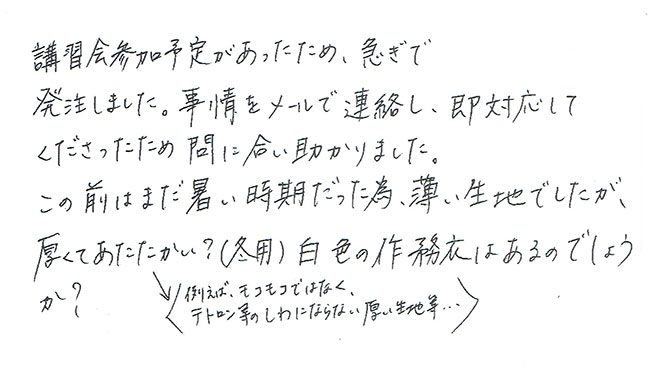 講習会参加予定があったため、急ぎで
発注しました。事情をメールで連絡し、即対応して
くださったため問に合い助かりました。
この前はまだ暑い時期だった為、薄い生地でしたが、
厚くてあたたかい?(冬用)白色の作務衣はあるのでしょう
か?
例えば、モコモコではなく、
テトロン等のしわにならない厚い生地等…